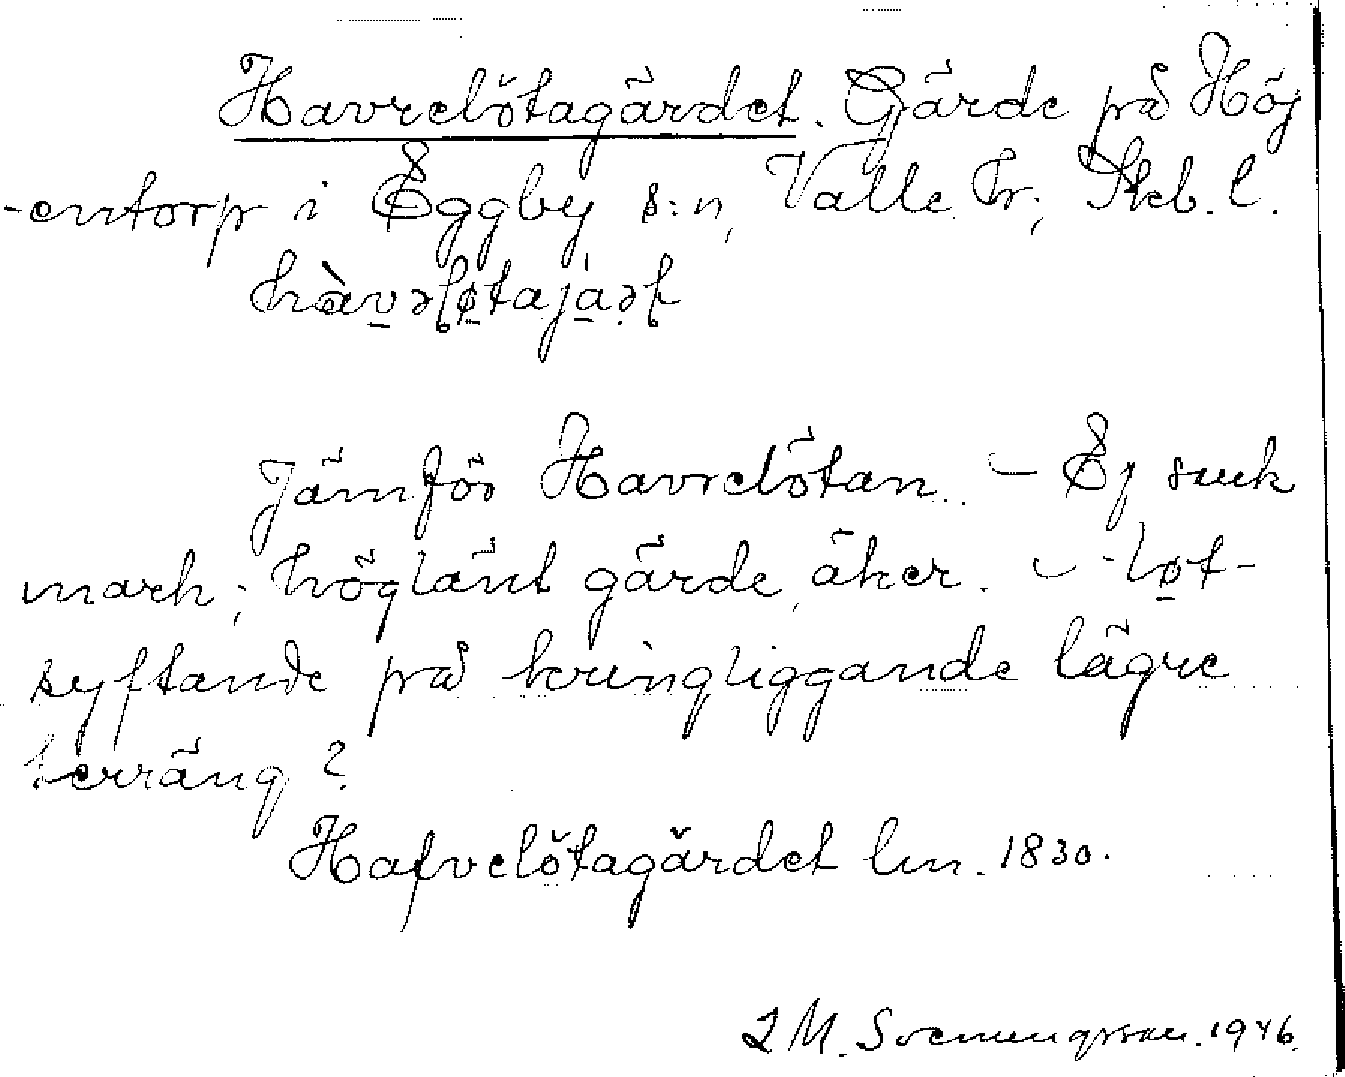 Havrelötagärdet. Gärde på Höj
-entorp i Eggby s:n, Valle hr; Skb. l.
Jämför Havrelötan. – Ej suck
mark; höglänt gärde, åker. – -løt-
syftande på kringliggande lägre
terräng?
Hafvelötagärdet lm. 1830.
M. Svenungsson. 1946.